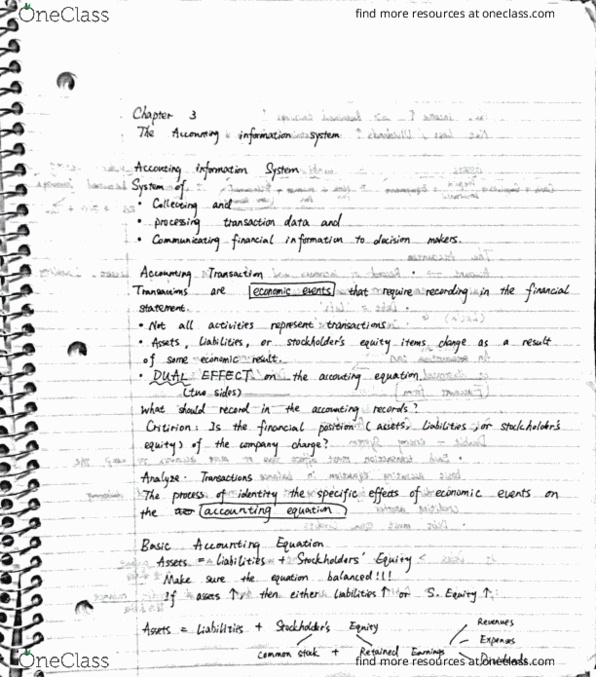 OneClass
find more resources at oneclass.com
Chapter 3
The Accounting information system
Accounting information System
System of
• Collecting and
• processing transaction data and
• Communicating financial information to decision makers.
Accounting Transaction
Transactions are economic events that require recording in the financial
statement.
• Not all activities represent transactions
• Assets, Liabilities, or stockholder's equity items change as a result
of some economic result.
• DUAL EFFECT on the accouting equation
(two sides)
What should record in the accounting records?
Critirion: Is the financial position (assets, liabilities, or stockholder's
equity) of the company change?
Analyze Transactions
The process of identity the specific effects of economic events on
the accounting equation
Basic Accounting Equation
Assets = Liabilities + Stockholders' Equity
Make sure the equation balanced!!!
If assets ↑, then either liabilities ↑ or S. Equity ↑.
Assets = Liabilities + Stockholder's Equity
Revenues
Expenses
Common stock + Retained Earnings
Dividends
OneClass
find more resources at oneclass.com